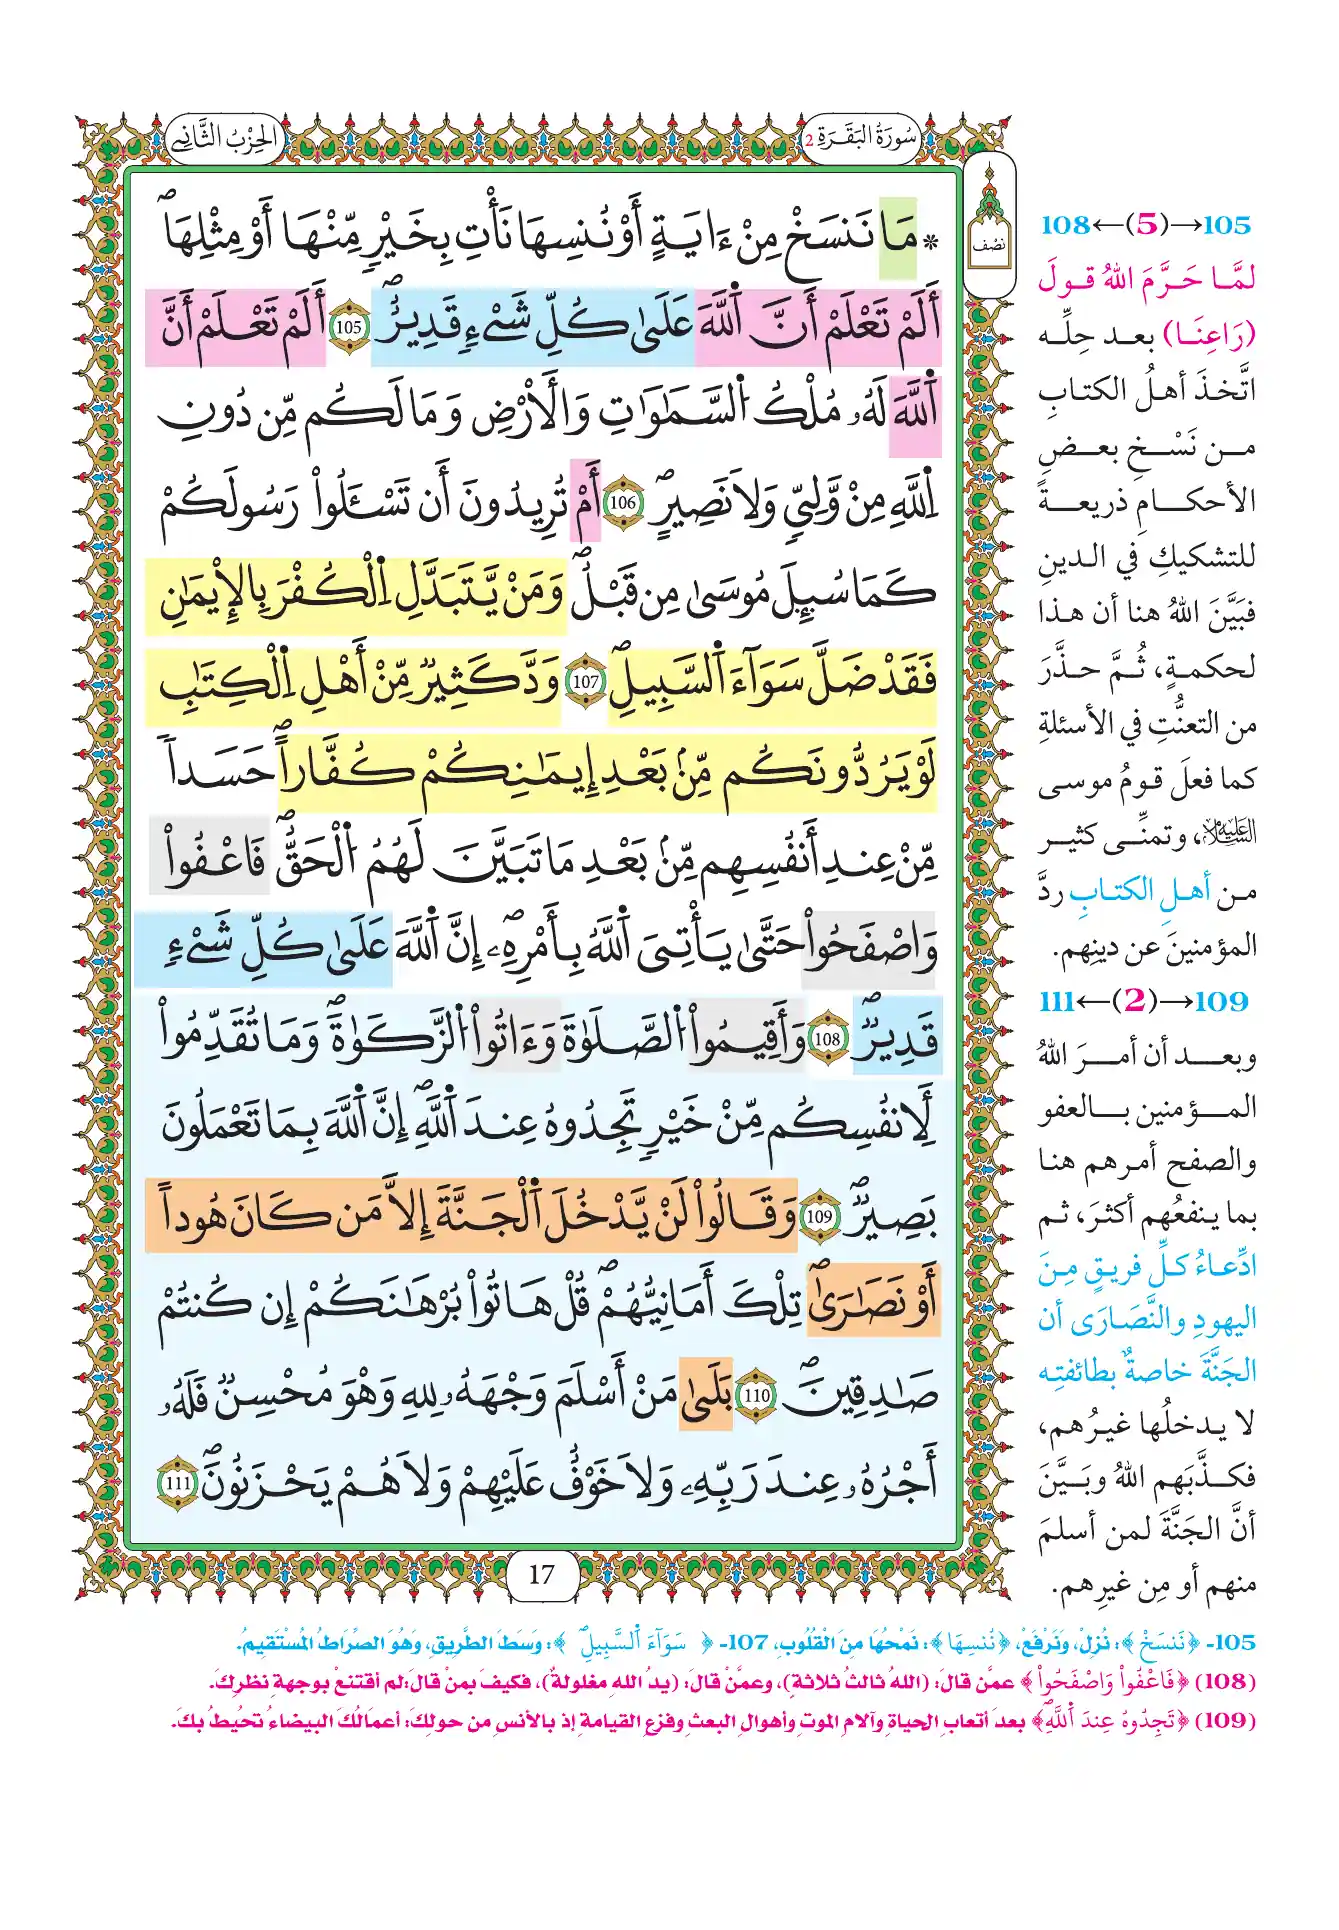 سُورَةُ البَقَرَةِ 2
الحِزْبُ الثَّانِي
نصف
* مَا نَنسَخْ مِنْ ءَايَةٍ أَوْ نُنسِهَا نَأْتِ بِخَيْرٍ مِّنْهَا أَوْ مِثْلِهَا
أَلَمْ تَعْلَمْ أَنَّ اَللَّهَ عَلَىٰ كُلِّ شَيْءٍ قَدِيرٌ 105 أَلَمْ تَعْلَمْ أَنَّ
اَللَّهَ لَهُۥ مُلْكُ اُلسَّمَٰوَٰتِ وَالْأَرْضِ وَمَا لَكُم مِّن دُونِ
اِللَّهِ مِنْ وَّلِيٍّ وَلَا نَصِيرٍ 106 أَمْ تُرِيدُونَ أَن تَسْـَٔلُواْ رَسُولَكُمْ
كَمَا سُئِلَ مُوسَىٰ مِن قَبْلُ وَمَنْ يَّتَبَدَّلِ اِلْكُفْرَ بِالْإِيمَٰنِ
فَقَدْ ضَلَّ سَوَآءَ اَلسَّبِيلِ 107 وَدَّ كَثِيرٌ مِّنْ أَهْلِ اِلْكِتَٰبِ
لَوْ يَرُدُّونَكُم مِّنۢ بَعْدِ إِيمَٰنِكُمْ كُفَّاراً حَسَداً
مِّنْ عِندِ أَنفُسِهِم مِّنۢ بَعْدِ مَا تَبَيَّنَ لَهُمُ اُلْحَقُّ فَاعْفُواْ
وَاصْفَحُواْ حَتَّىٰ يَأْتِيَ اَللَّهُ بِأَمْرِهِۦ إِنَّ اَللَّهَ عَلَىٰ كُلِّ شَيْءٍ
قَدِيرٌ 108 وَأَقِيمُواْ اُلصَّلَوٰةَ وَءَاتُواْ اُلزَّكَوٰةَ وَمَا تُقَدِّمُواْ
لِأَنفُسِكُم مِّنْ خَيْرٍ تَجِدُوهُ عِندَ اَللَّهِ إِنَّ اَللَّهَ بِمَا تَعْمَلُونَ
بَصِيرٌ 109 وَقَالُواْ لَنْ يَّدْخُلَ اَلْجَنَّةَ إِلَّا مَن كَانَ هُوداً
أَوْ نَصَٰرَىٰ تِلْكَ أَمَانِيُّهُمْ قُلْ هَاتُواْ بُرْهَٰنَكُمْ إِن كُنتُمْ
صَٰدِقِينَ 110 بَلَىٰ مَنْ أَسْلَمَ وَجْهَهُۥ لِلهِ وَهْوَ مُحْسِنٌ فَلَهُۥ
أَجْرُهُۥ عِندَ رَبِّهِۦ وَلَا خَوْفٌ عَلَيْهِمْ وَلَا هُمْ يَحْزَنُونَ 111
17
105→(5)←108
لمَّا حَرَّمَ اللهُ قولَ
(رَاعِنَا) بعد حِلِّه
اتَّخذَ أهلُ الكتابِ
من نَسْخِ بعضِ
الأحكامِ ذريعةً
للتشكيكِ في الدينِ
فبَيَّنَ اللهُ هنا أن هذا
لحكمةٍ، ثُمَّ حذَّرَ
من التعنُّتِ في الأسئلةِ
كما فعلَ قومُ موسى
عليه السلام، وتمنِّى كثير
من أهلِ الكتابِ ردَّ
المؤمنينَ عن دينِهم.
109→(2)←111
وبعد أن أمرَ اللهُ
المؤمنين بالعفو
والصفح أمرهم هنا
بما ينفعُهم أكثرَ، ثم
ادِّعاءُ كلِّ فريقٍ مِنَ
اليهودِ والنَّصَارَى أن
الجَنَّةَ خاصةٌ بطائفتِه
لا يدخلُها غيرُهم،
فكذَّبَهم اللهُ وبَيَّنَ
أنَّ الجَنَّةَ لمن أسلمَ
منهم أو مِن غيرِهم.
105- ﴿نَنسَخْ﴾: نُزِلْ، وَنَرْفَعْ، ﴿نُنسِهَا﴾: نَمْحُهَا مِنَ الْقُلُوبِ، 107- ﴿سَوَآءَ اَلسَّبِيلِ﴾: وَسَطَ الطَّرِيقِ، وَهُوَ الصِّرَاطُ المُسْتَقِيمُ.
(108) ﴿فَاعْفُواْ وَاصْفَحُواْ﴾ عمَّن قال: (اللهُ ثالثُ ثلاثةٍ)، وعمَّنْ قالَ: (يدُ اللهِ مغلولةٌ)، فكيفَ بمنْ قالَ: لم أقتنعْ بوجهةِ نظرِكَ.
(109) ﴿تَجِدُوهُ عِندَ اَللَّهِ﴾ بعدَ أتعابِ الحياةِ وآلامِ الموتِ وأهوالِ البعثِ وفزعِ القيامةِ إذ بالأنسِ من حولِكَ: أعمَالُكَ البيضاءُ تحُيطُ بكَ.